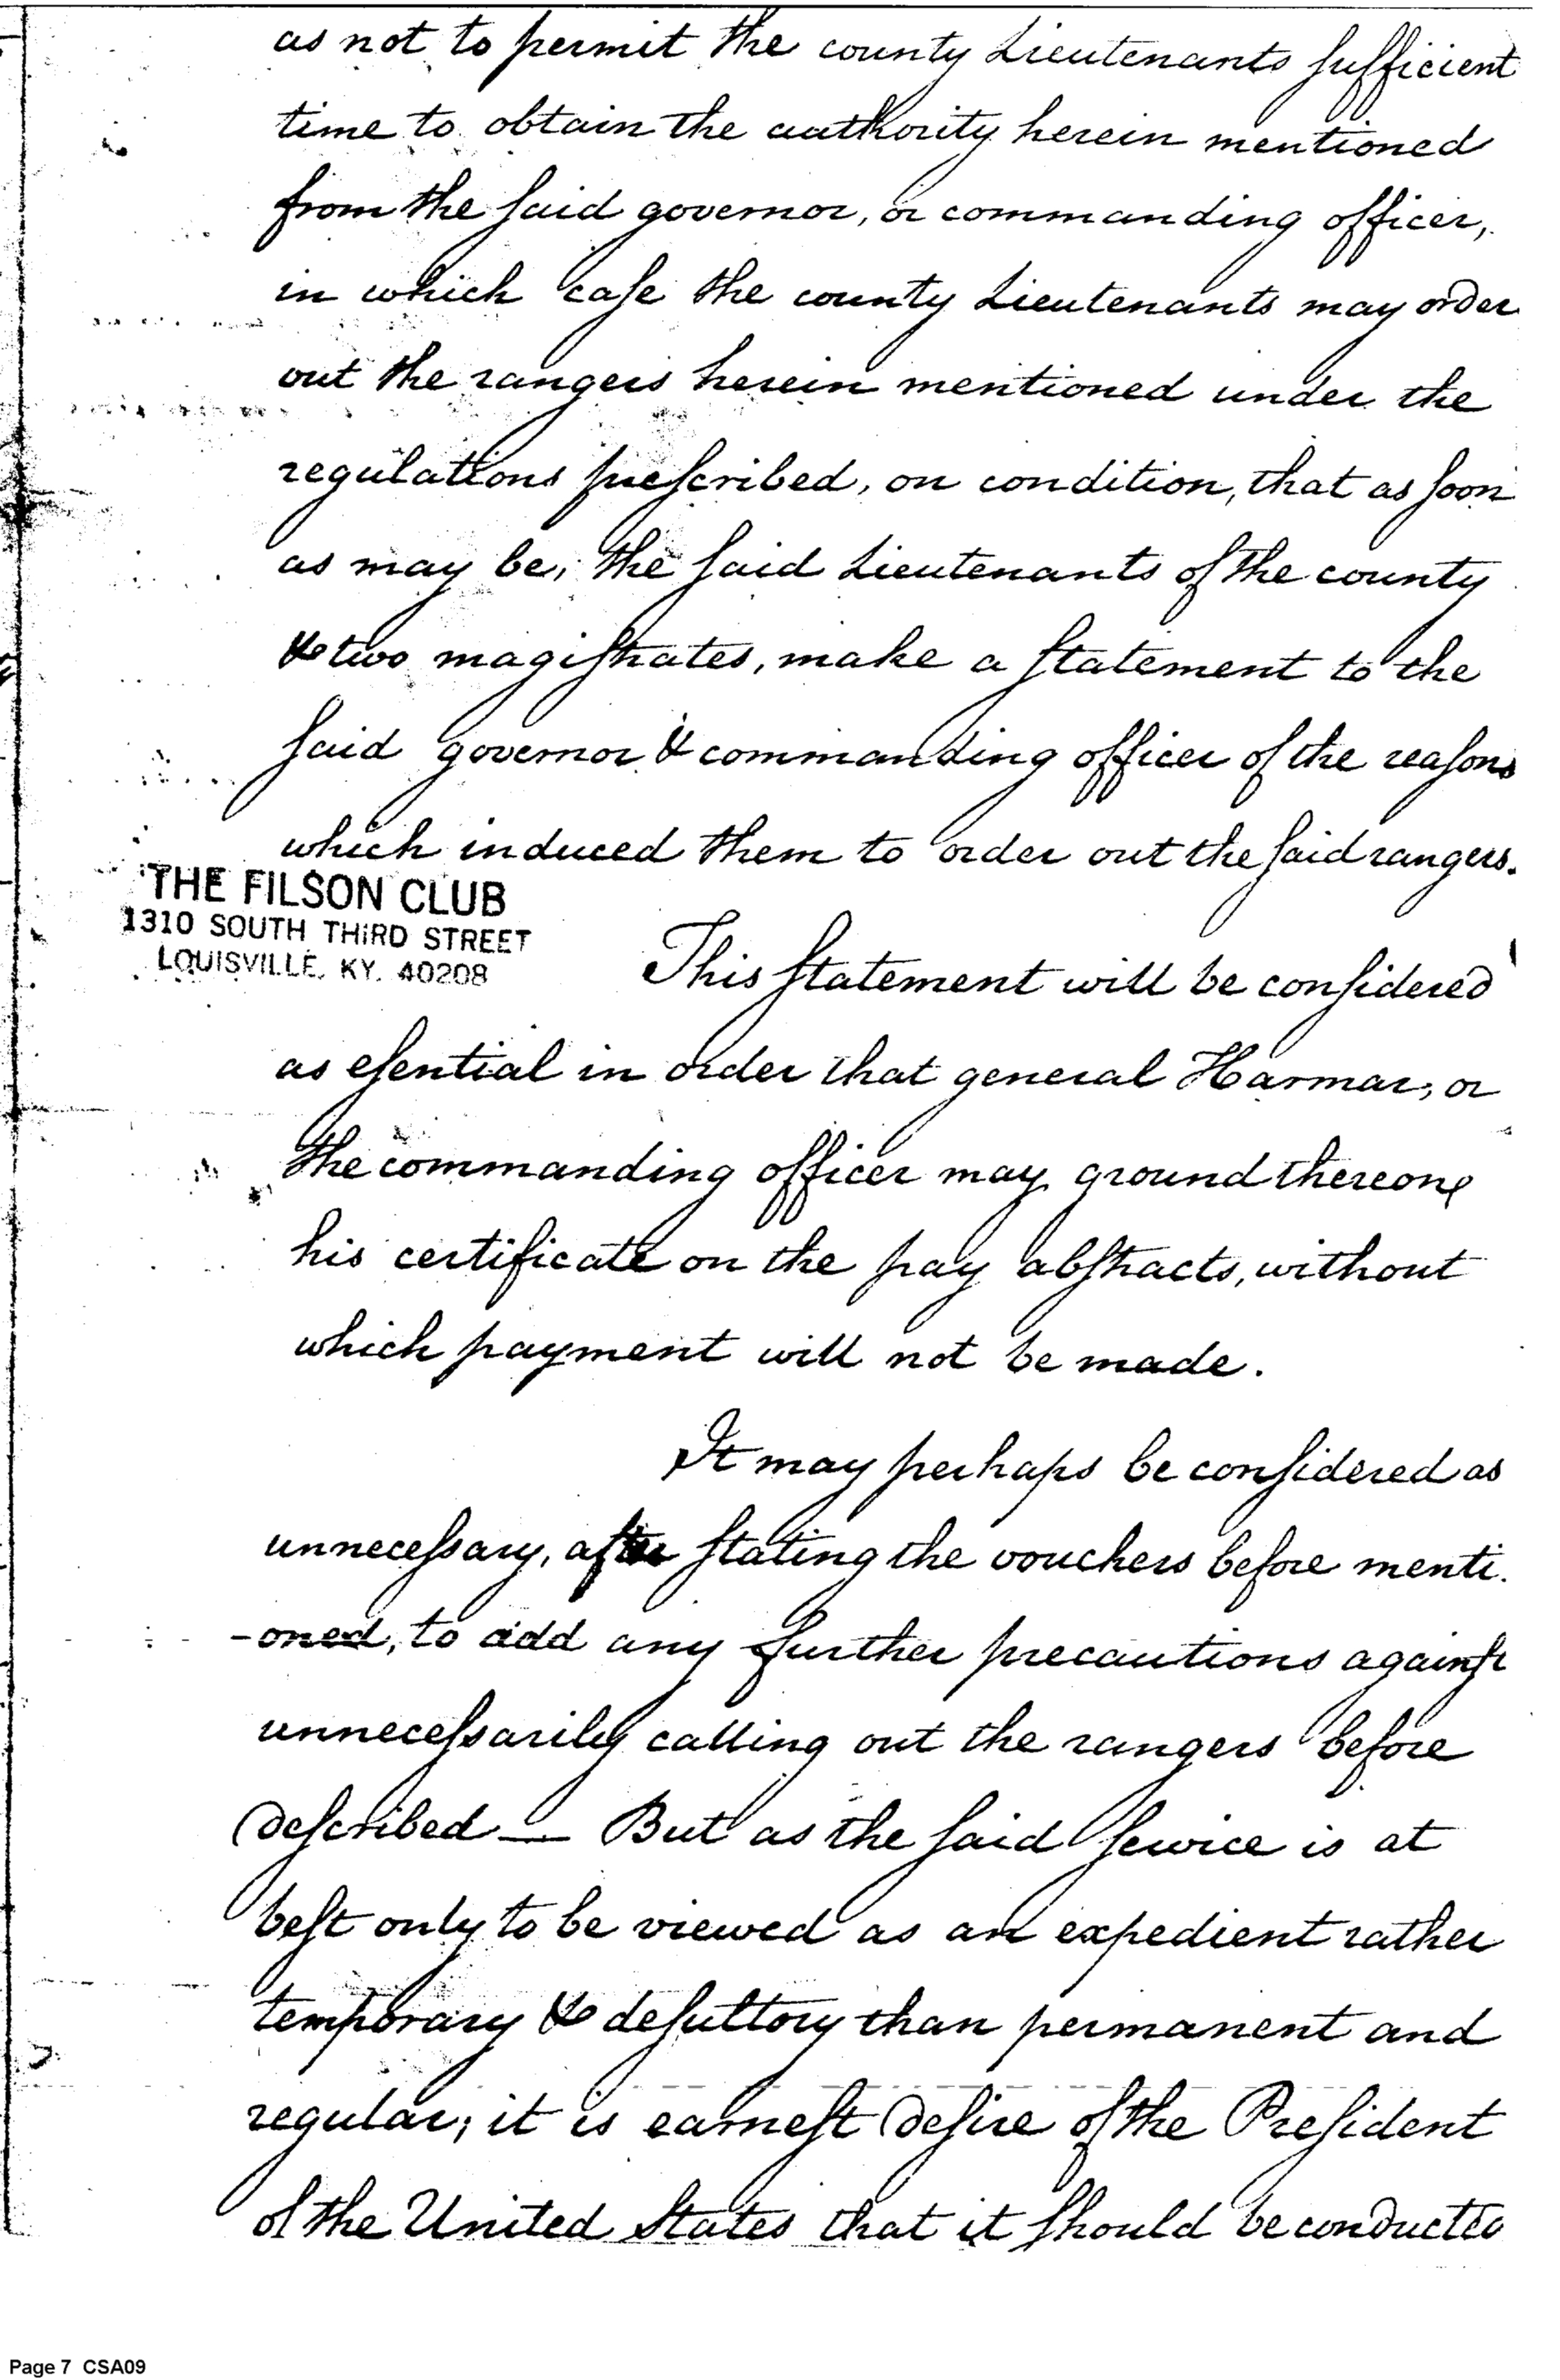 as not to permit the county Lieutenants sufficient
time to obtain the authority herein mentioned
from the said governor, or commanding officer,
in which case the county Lieutenants may order
out the rangers herein mentioned under the
regulations prescribed, on condition, that as soon
as may be, the said Lieutenants of the county
& two magistrates, make a statement to the
said governor & commanding officer of the reasons
which induced them to order out the said rangers.
THE FILSON CLUB
1310 SOUTH THIRD STREET
LOUISVILLE, KY. 40208
This statement will be considered
as esential in order that general Harmar, or
the commanding officer may ground thereon
his certificate on the pay abstracts, without
which payment will not be made.
It may perhaps be considered as
unnecessary, after stating the vouchers before menti.
-oned, to add any further precautions against
unnecessarily calling out the rangers before
described — But as the said service is at
best only to be viewed as an expedient rather
temporary & desultory than permanent and
regular; it is earnest desire of the President
of the United States that it should be conducted
Page 7 CSA09